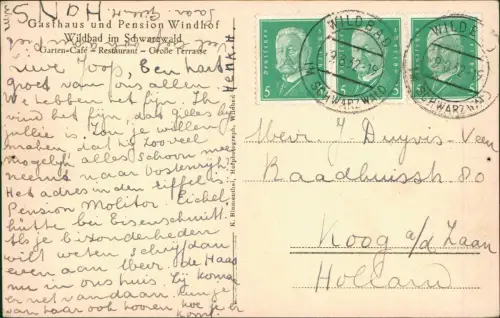 Gasthaus und Pension Windhof
Wildbad im Schwarzwald
Garten-Café - Restaurant - Große Terrasse
Joop, Een hart
groet van ons allen
We hebben het fijn. Ik
vind het fijn, dat alles bij
jullie is. Zou je willen
maken, dat hij zooveel
mogelijk alles schoon mee
neemt naar Oostenrijk
Het adres in den Eiffel is:
Pension Molitor. Eichel-
hütte bei Eisenschmitt.
Als je bizonderheden
wilt weten schrijf dan
even aan Mevr. de Haas
nu in ons huis. Zij komt
er net vandaan. Kun je
van haar ook hooren hoe je er
komt.
K. Blumenthal, Hofphotograph, Wildbad
WILDBAD
SCHWARZWALD
DEUTSCHES REICH
5
5
5
WILDBAD
SCHWARZWALD
Mevr. J Duyvis-Van
Raadhuisstr 80
Koog a/d Zaan
Holland